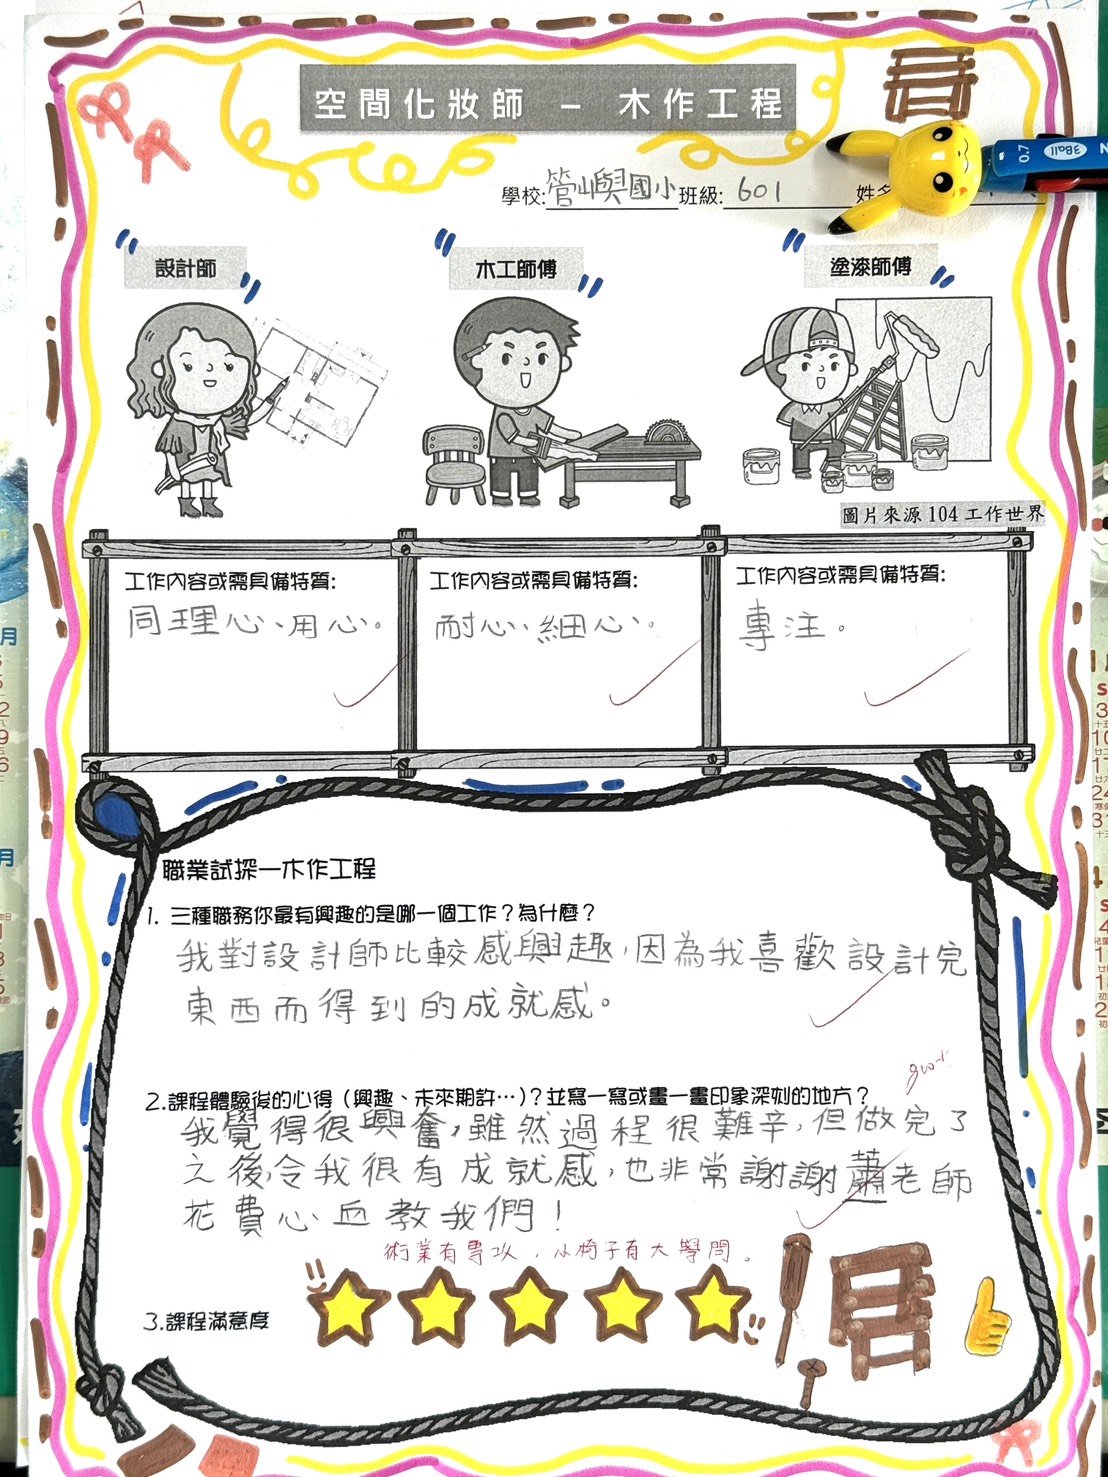 空間化妝師 – 木作工程
學校:管嶼國小 班級: 601
設計師
木工師傅
塗漆師傅
圖片來源 104 工作世界
工作內容或需具備特質:
同理心、用心。
工作內容或需具備特質:
耐心、細心。
工作內容或需具備特質:
專注。
職業試探—木作工程
1. 三種職務你最有興趣的是哪一個工作？為什麼？
我對設計師比較感興趣，因為我喜歡設計完
東西而得到的成就感。
2.課程體驗後的心得（興趣、未來期許…）？並寫一寫或畫一畫印象深刻的地方？
我覺得很興奮，雖然過程很難辛，但做完了
之後，令我很有成就感，也非常謝謝蕭老師
花費心血教我們！
術業有專攻，小椅子有大學問。
3.課程滿意度
0.7
3Ball